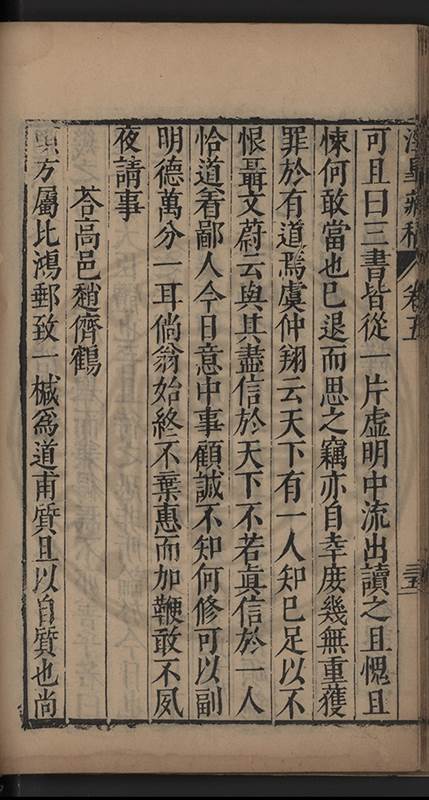 涇臯藏稿 卷五 三五
可且曰三書皆從一片虛明中流出讀之且愧且
悚何敢當也已退而思之竊亦自幸庻幾無重獲
罪於有道焉虞仲翔云天下有一人知已足以不
恨聶文蔚云與其盡信於天下不若眞信於一人
恰道着鄙人今日意中事顧誠不知何修可以副
明德萬分一耳倘翁始終不棄惠而加鞭敢不夙
夜請事
荅高邑趙儕鶴
方屬比鴻郵致一椷爲道甫質且以自質也尚